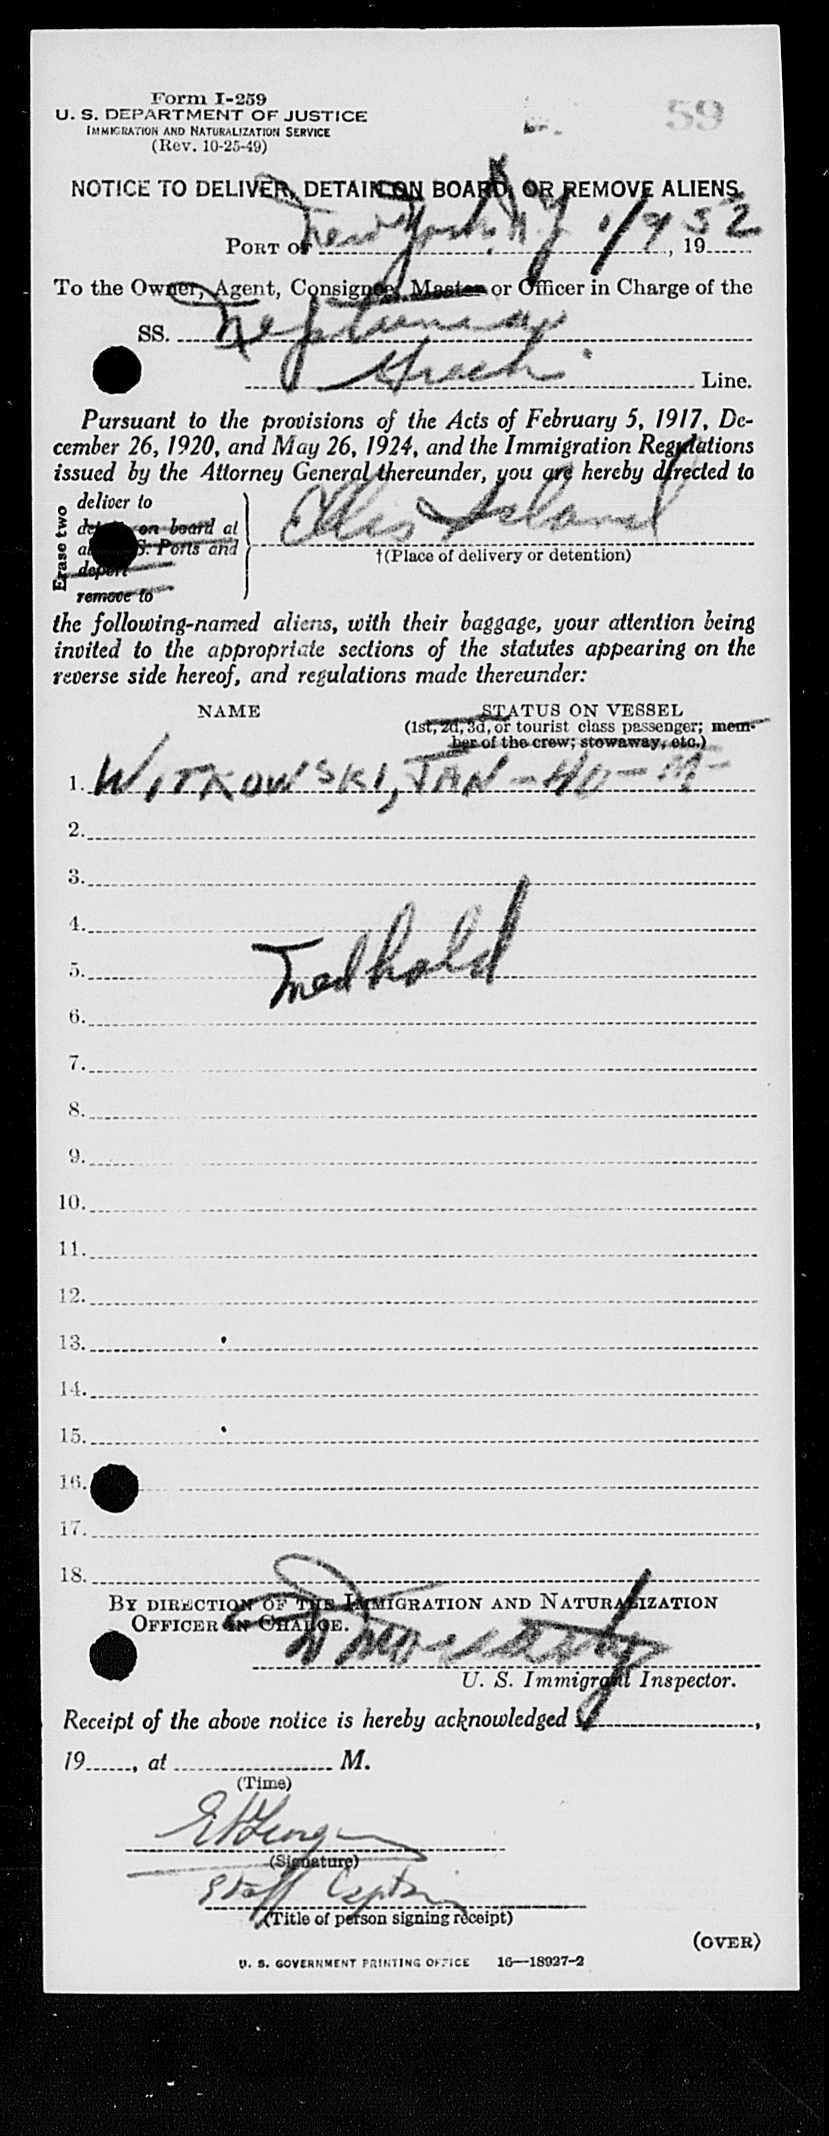 59
Form I-259
U. S. DEPARTMENT OF JUSTICE
IMMIGRATION AND NATURALIZATION SERVICE
(Rev. 10-25-49)
NOTICE TO DELIVER, DETAIN ON BOARD, OR REMOVE ALIENS
PORT OF New York, N.Y 1/9, 1952
To the Owner, Agent, Consignee, Master or Officer in Charge of the
SS. Neptunia
Greek Line.
Pursuant to the provisions of the Acts of February 5, 1917, De-
cember 26, 1920, and May 26, 1924, and the Immigration Regulations
issued by the Attorney General thereunder, you are hereby directed to
Erase two
deliver to
detain on board at
all U.S. Ports and
deport
remove to
Ellis Island
†(Place of delivery or detention)
the following-named aliens, with their baggage, your attention being
invited to the appropriate sections of the statutes appearing on the
reverse side hereof, and regulations made thereunder:
NAME STATUS ON VESSEL
(1st, 2d, 3d, or tourist class passenger; mem-
ber of the crew; stowaway, etc.)
1. WITKOWSKI, JAN - 40 - M -
2.
3.
4.
5. Med hold
6.
7.
8.
9.
10.
11.
12.
13.
14.
15.
16.
17.
18.
BY DIRECTION OF THE IMMIGRATION AND NATURALIZATION
OFFICER IN CHARGE.
U. S. Immigrant Inspector.
Receipt of the above notice is hereby acknowledged
19......, at .................... M.
(Time)
(Signature)
Staff Captain
(Title of person signing receipt)
(OVER)
U. S. GOVERNMENT PRINTING OFFICE 16—18927-2